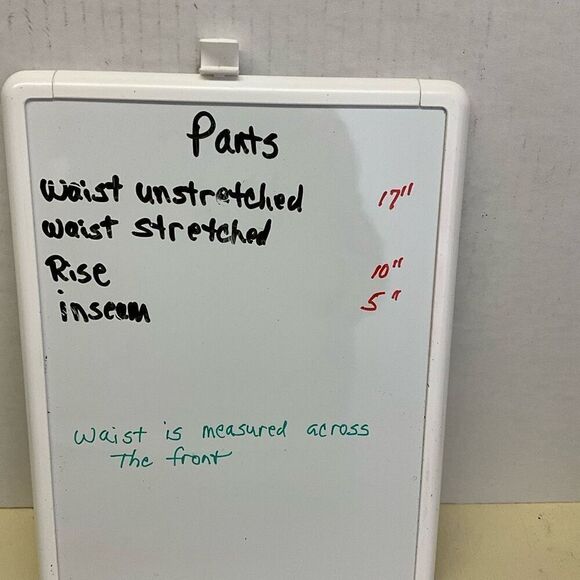 Pants
waist unstretched 17"
waist stretched
Rise 10"
inseam 5"
Waist is measured across
The front